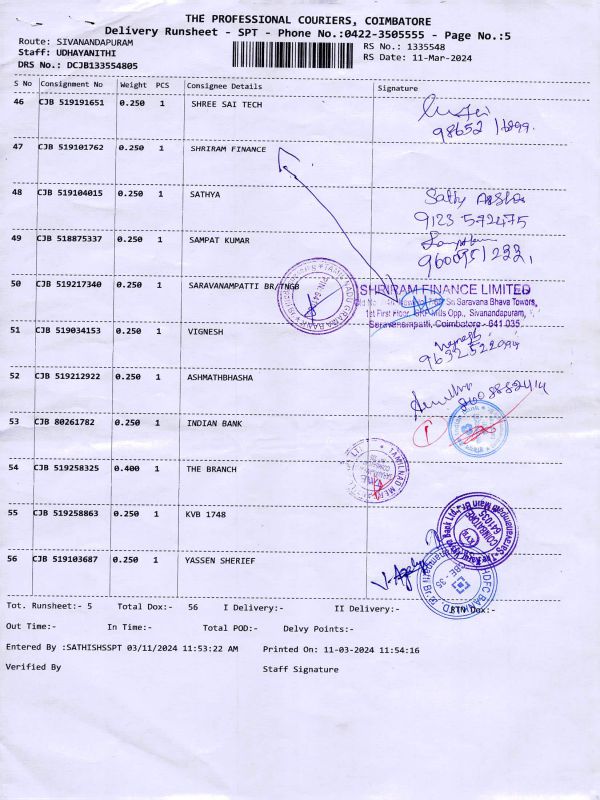 THE PROFESSIONAL COURIERS, COIMBATORE
Delivery Runsheet - SPT - Phone No.:0422-3505555 - Page No.:5
Route: SIVANANDAPURAM
Staff: UDHAYANITHI
RS No.: 1335548
DRS No.: DCJB133554805
RS Date: 11-Mar-2024
S No Consignment No Weight PCS Consignee Details Signature
46 CJB 519191651 0.250 1 SHREE SAI TECH
47 CJB 519101762 0.250 1 SHRIRAM FINANCE
48 CJB 519104015 0.250 1 SATHYA
9123 572475
49 CJB 518875337 0.250 1 SAMPAT KUMAR
50 CJB 519217340 0.250 1 SARAVANAMPATTI BR/TNGB
SHRIRAM FINANCE LIMITED
Sri Saravana Bhava Towers,
1st Floor, SRP Mills Opp., Sivanandapuram,
Saravanampatti, Coimbatore - 641 035.
51 CJB 519034153 0.250 1 VIGNESH
52 CJB 519212922 0.250 1 ASHMATHBHASHA
53 CJB 80261782 0.250 1 INDIAN BANK
1
54 CJB 519258325 0.400 1 THE BRANCH
55 CJB 519258863 0.250 1 KVB 1748
COIMBATORE
641035
56 CJB 519103687 0.250 1 YASSEN SHERIEF
Tot. Runsheet:- 5 Total Dox:- 56 I Delivery:- II Delivery:- RTN Dox:-
Out Time:- In Time:- Total POD:- Delvy Points:-
Entered By :SATHISHSSPT 03/11/2024 11:53:22 AM Printed On: 11-03-2024 11:54:16
Verified By Staff Signature